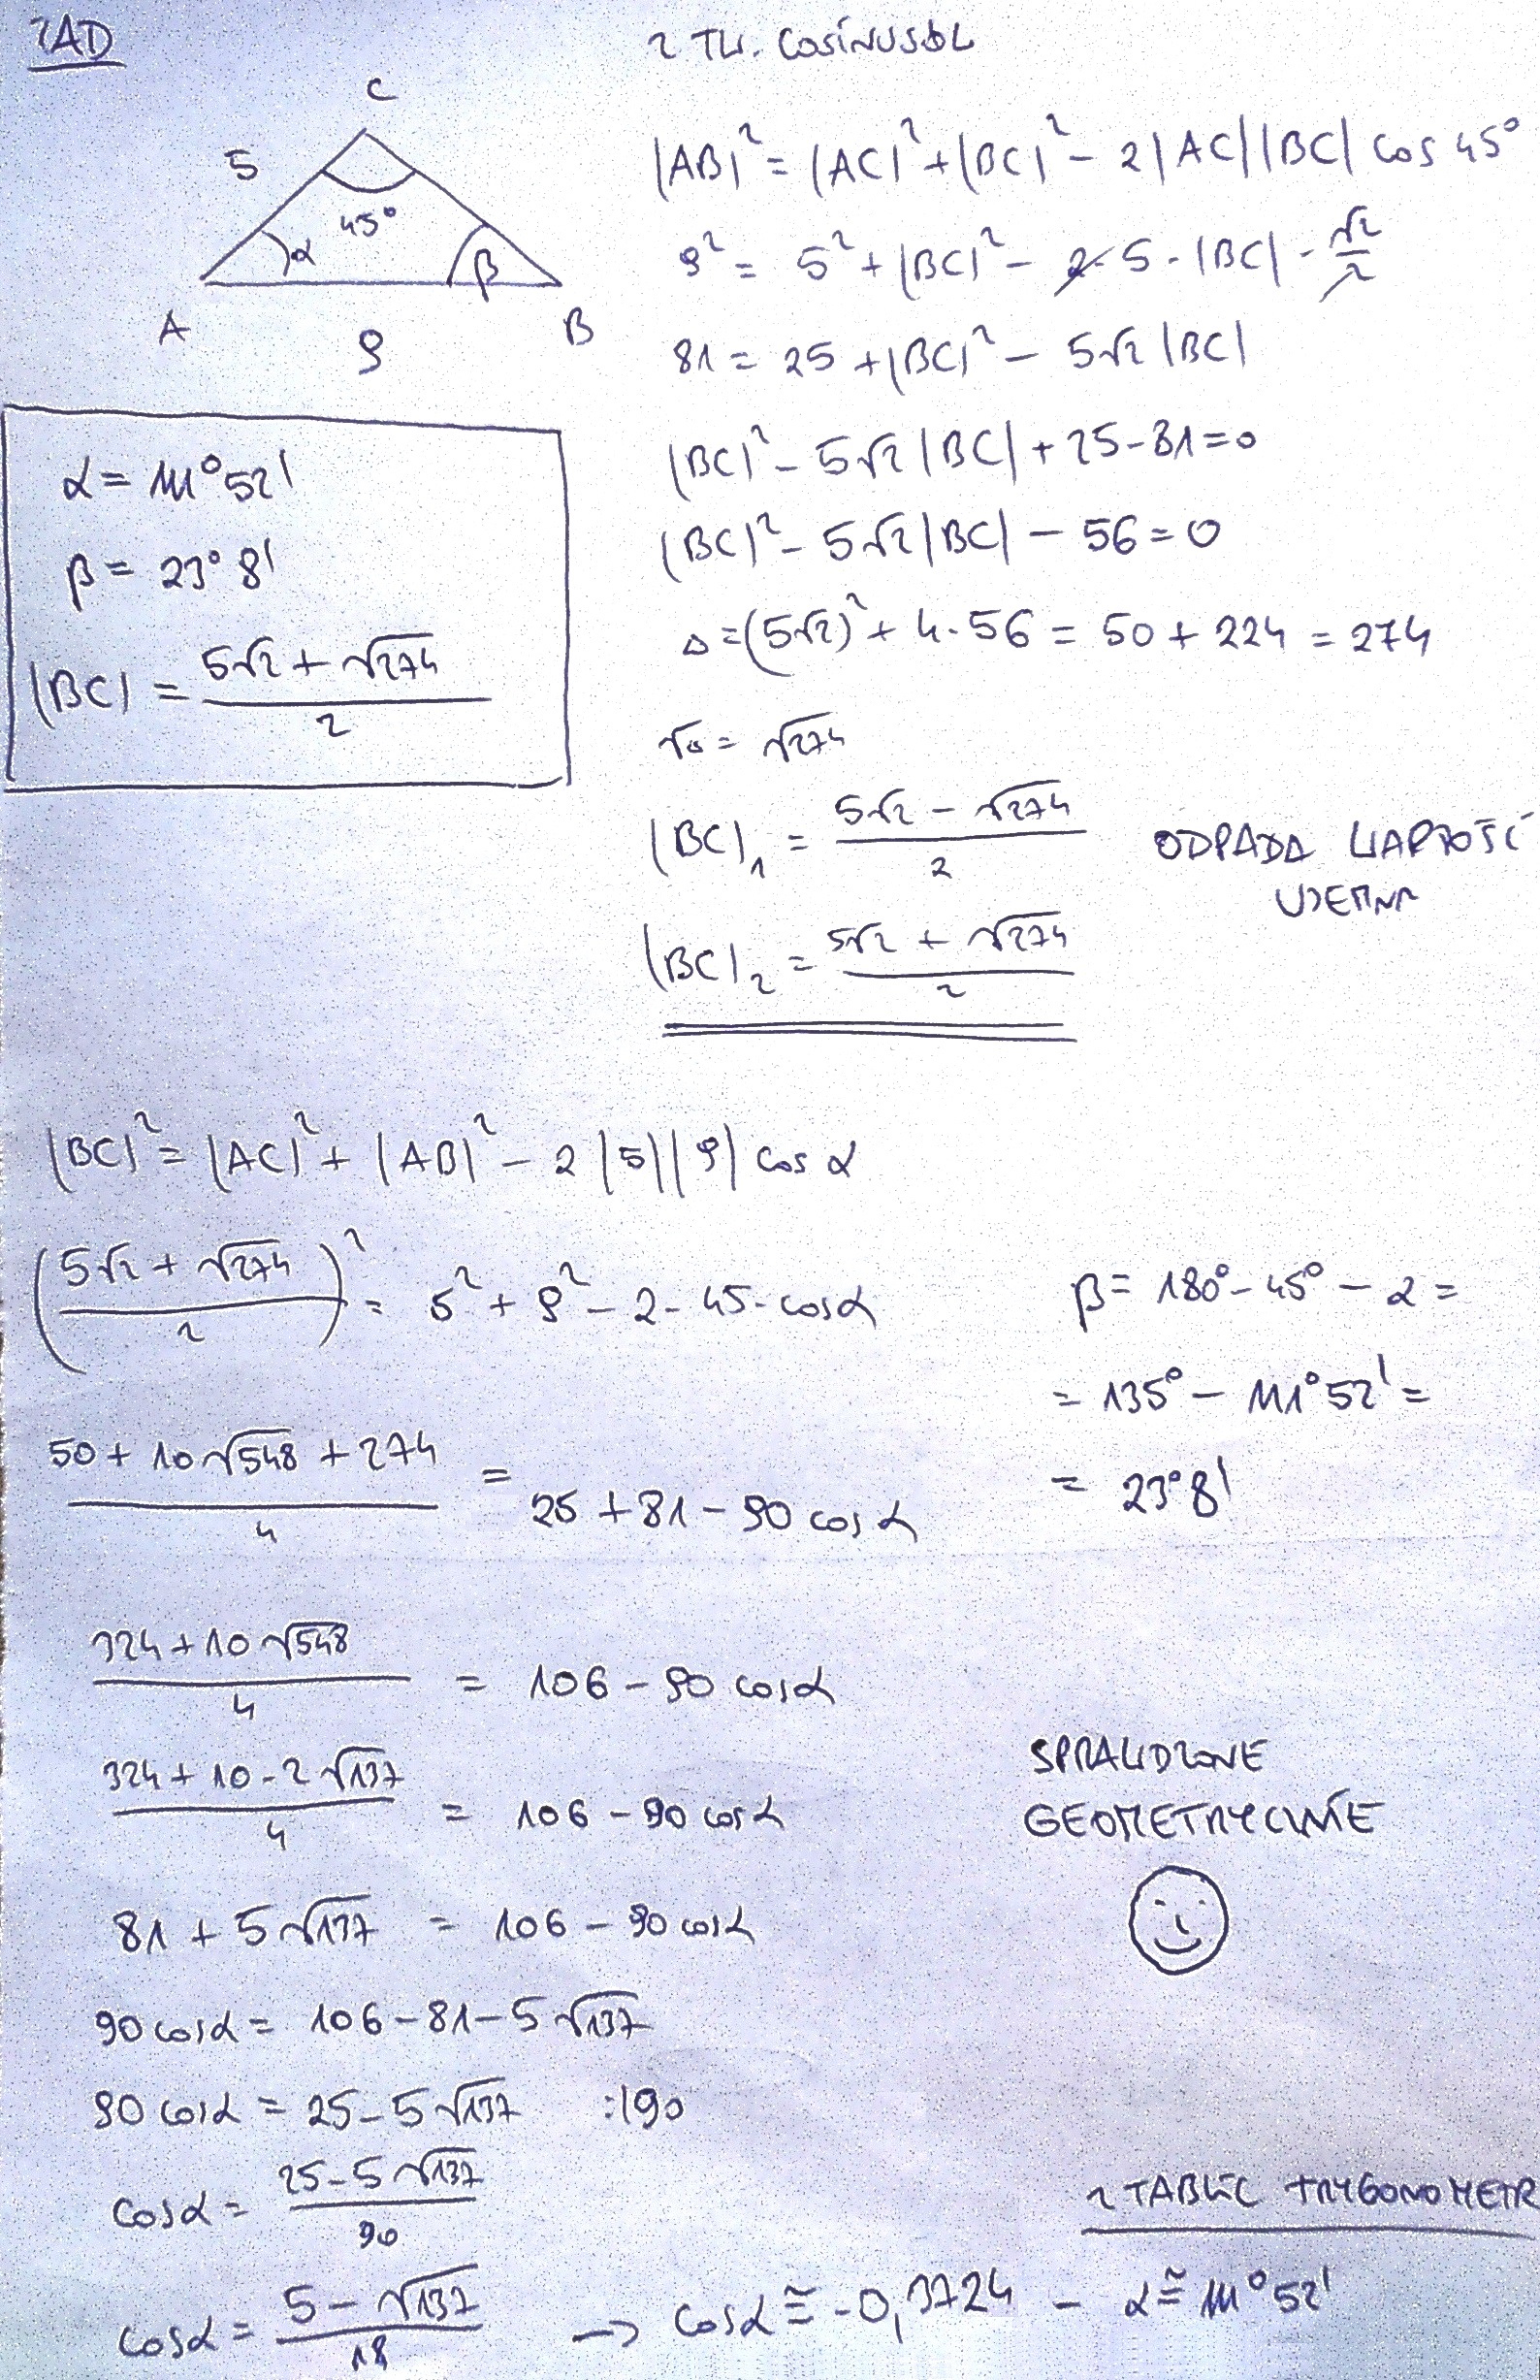 ZAD
Z TW. COSINUSÓW
C
5
45°
α
β
A
9
B
|AB|² = |AC|² + |BC|² - 2|AC||BC| cos 45°
9² = 5² + |BC|² - 2·5·|BC|·√2/2
81 = 25 + |BC|² - 5√2 |BC|
|BC|² - 5√2 |BC| + 25 - 81 = 0
|BC|² - 5√2 |BC| - 56 = 0
Δ = (5√2)² + 4·56 = 50 + 224 = 274
√Δ = √274
|BC|₁ = (5√2 - √274)/2 ODPADA WARTOŚĆ
UJEMNA
|BC|₂ = (5√2 + √274)/2
α = 111°52'
β = 23°8'
|BC| = (5√2 + √274)/2
|BC|² = |AC|² + |AB|² - 2|5||9| cos α
((5√2 + √274)/2)² = 5² + 9² - 2·45·cos α
(50 + 10√548 + 274)/4 = 25 + 81 - 90 cos α
(324 + 10√548)/4 = 106 - 90 cos α
(324 + 10·2√137)/4 = 106 - 90 cos α
81 + 5√137 = 106 - 90 cos α
90 cos α = 106 - 81 - 5√137
90 cos α = 25 - 5√137 :|90
cos α = (25 - 5√137)/90
cos α = (5 - √137)/18 → cos α ≅ -0,3724 - α ≅ 111°52'
β = 180° - 45° - α =
= 135° - 111°52' =
= 23°8'
SPRAWDZONE
GEOMETRYCZNIE
Z TABLIC TRYGONOMETR